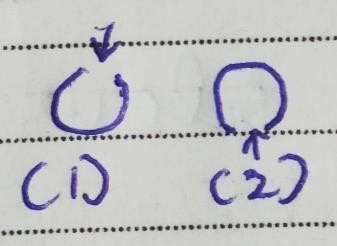 (1) (2)